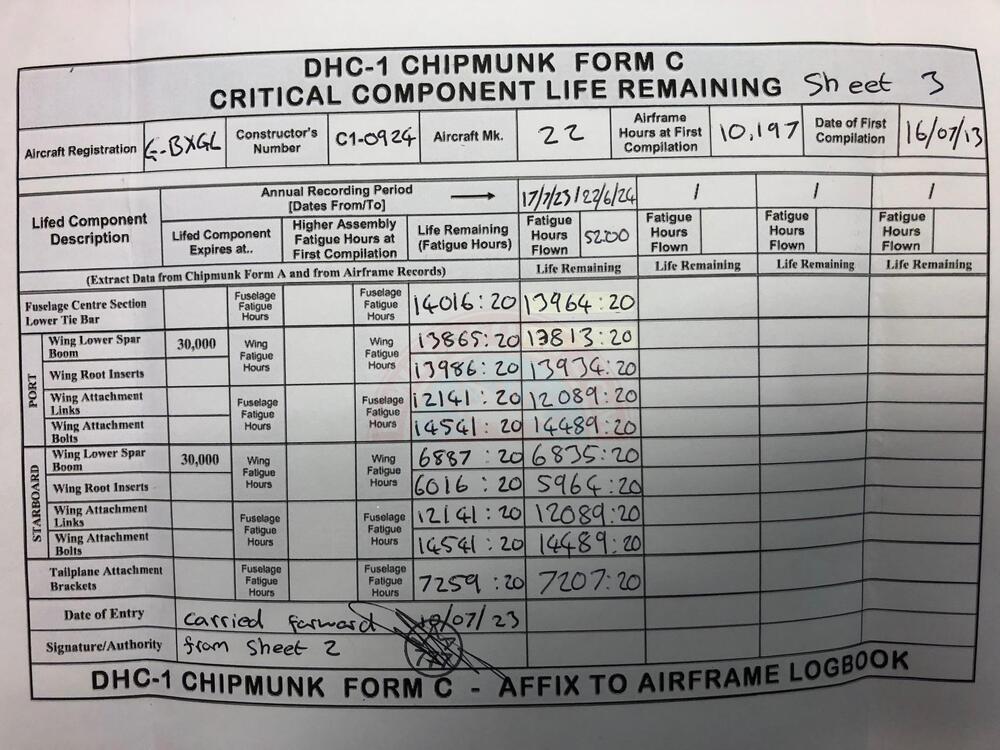 DHC-1 CHIPMUNK FORM C
CRITICAL COMPONENT LIFE REMAINING Sheet 3
Aircraft Registration G-BXGL Constructor's Number C1-0924 Aircraft Mk. 22 Airframe Hours at First Compilation 10,197 Date of First Compilation 16/07/13
Lifed Component Description
Annual Recording Period [Dates From/To] 17/7/23 / 22/6/24 / / /
Lifed Component Expires at.. Higher Assembly Fatigue Hours at First Compilation Life Remaining (Fatigue Hours) Fatigue Hours Flown 52.00 Fatigue Hours Flown Fatigue Hours Flown Fatigue Hours Flown
(Extract Data from Chipmunk Form A and from Airframe Records) Life Remaining Life Remaining Life Remaining Life Remaining
Fuselage Centre Section Lower Tie Bar Fuselage Fatigue Hours Fuselage Fatigue Hours 14016:20 13964:20
PORT
Wing Lower Spar Boom 30,000 Wing Fatigue Hours Wing Fatigue Hours 13865:20 13813:20
Wing Root Inserts 13986:20 13934:20
Wing Attachment Links Fuselage Fatigue Hours Fuselage Fatigue Hours 12141:20 12089:20
Wing Attachment Bolts 14541:20 14489:20
STARBOARD
Wing Lower Spar Boom 30,000 Wing Fatigue Hours Wing Fatigue Hours 6887:20 6835:20
Wing Root Inserts 6016:20 5964:20
Wing Attachment Links Fuselage Fatigue Hours Fuselage Fatigue Hours 12141:20 12089:20
Wing Attachment Bolts 14541:20 14489:20
Tailplane Attachment Brackets Fuselage Fatigue Hours Fuselage Fatigue Hours 7259:20 7207:20
Date of Entry carried forward /07/23
Signature/Authority from Sheet 2
DHC-1 CHIPMUNK FORM C - AFFIX TO AIRFRAME LOGBOOK